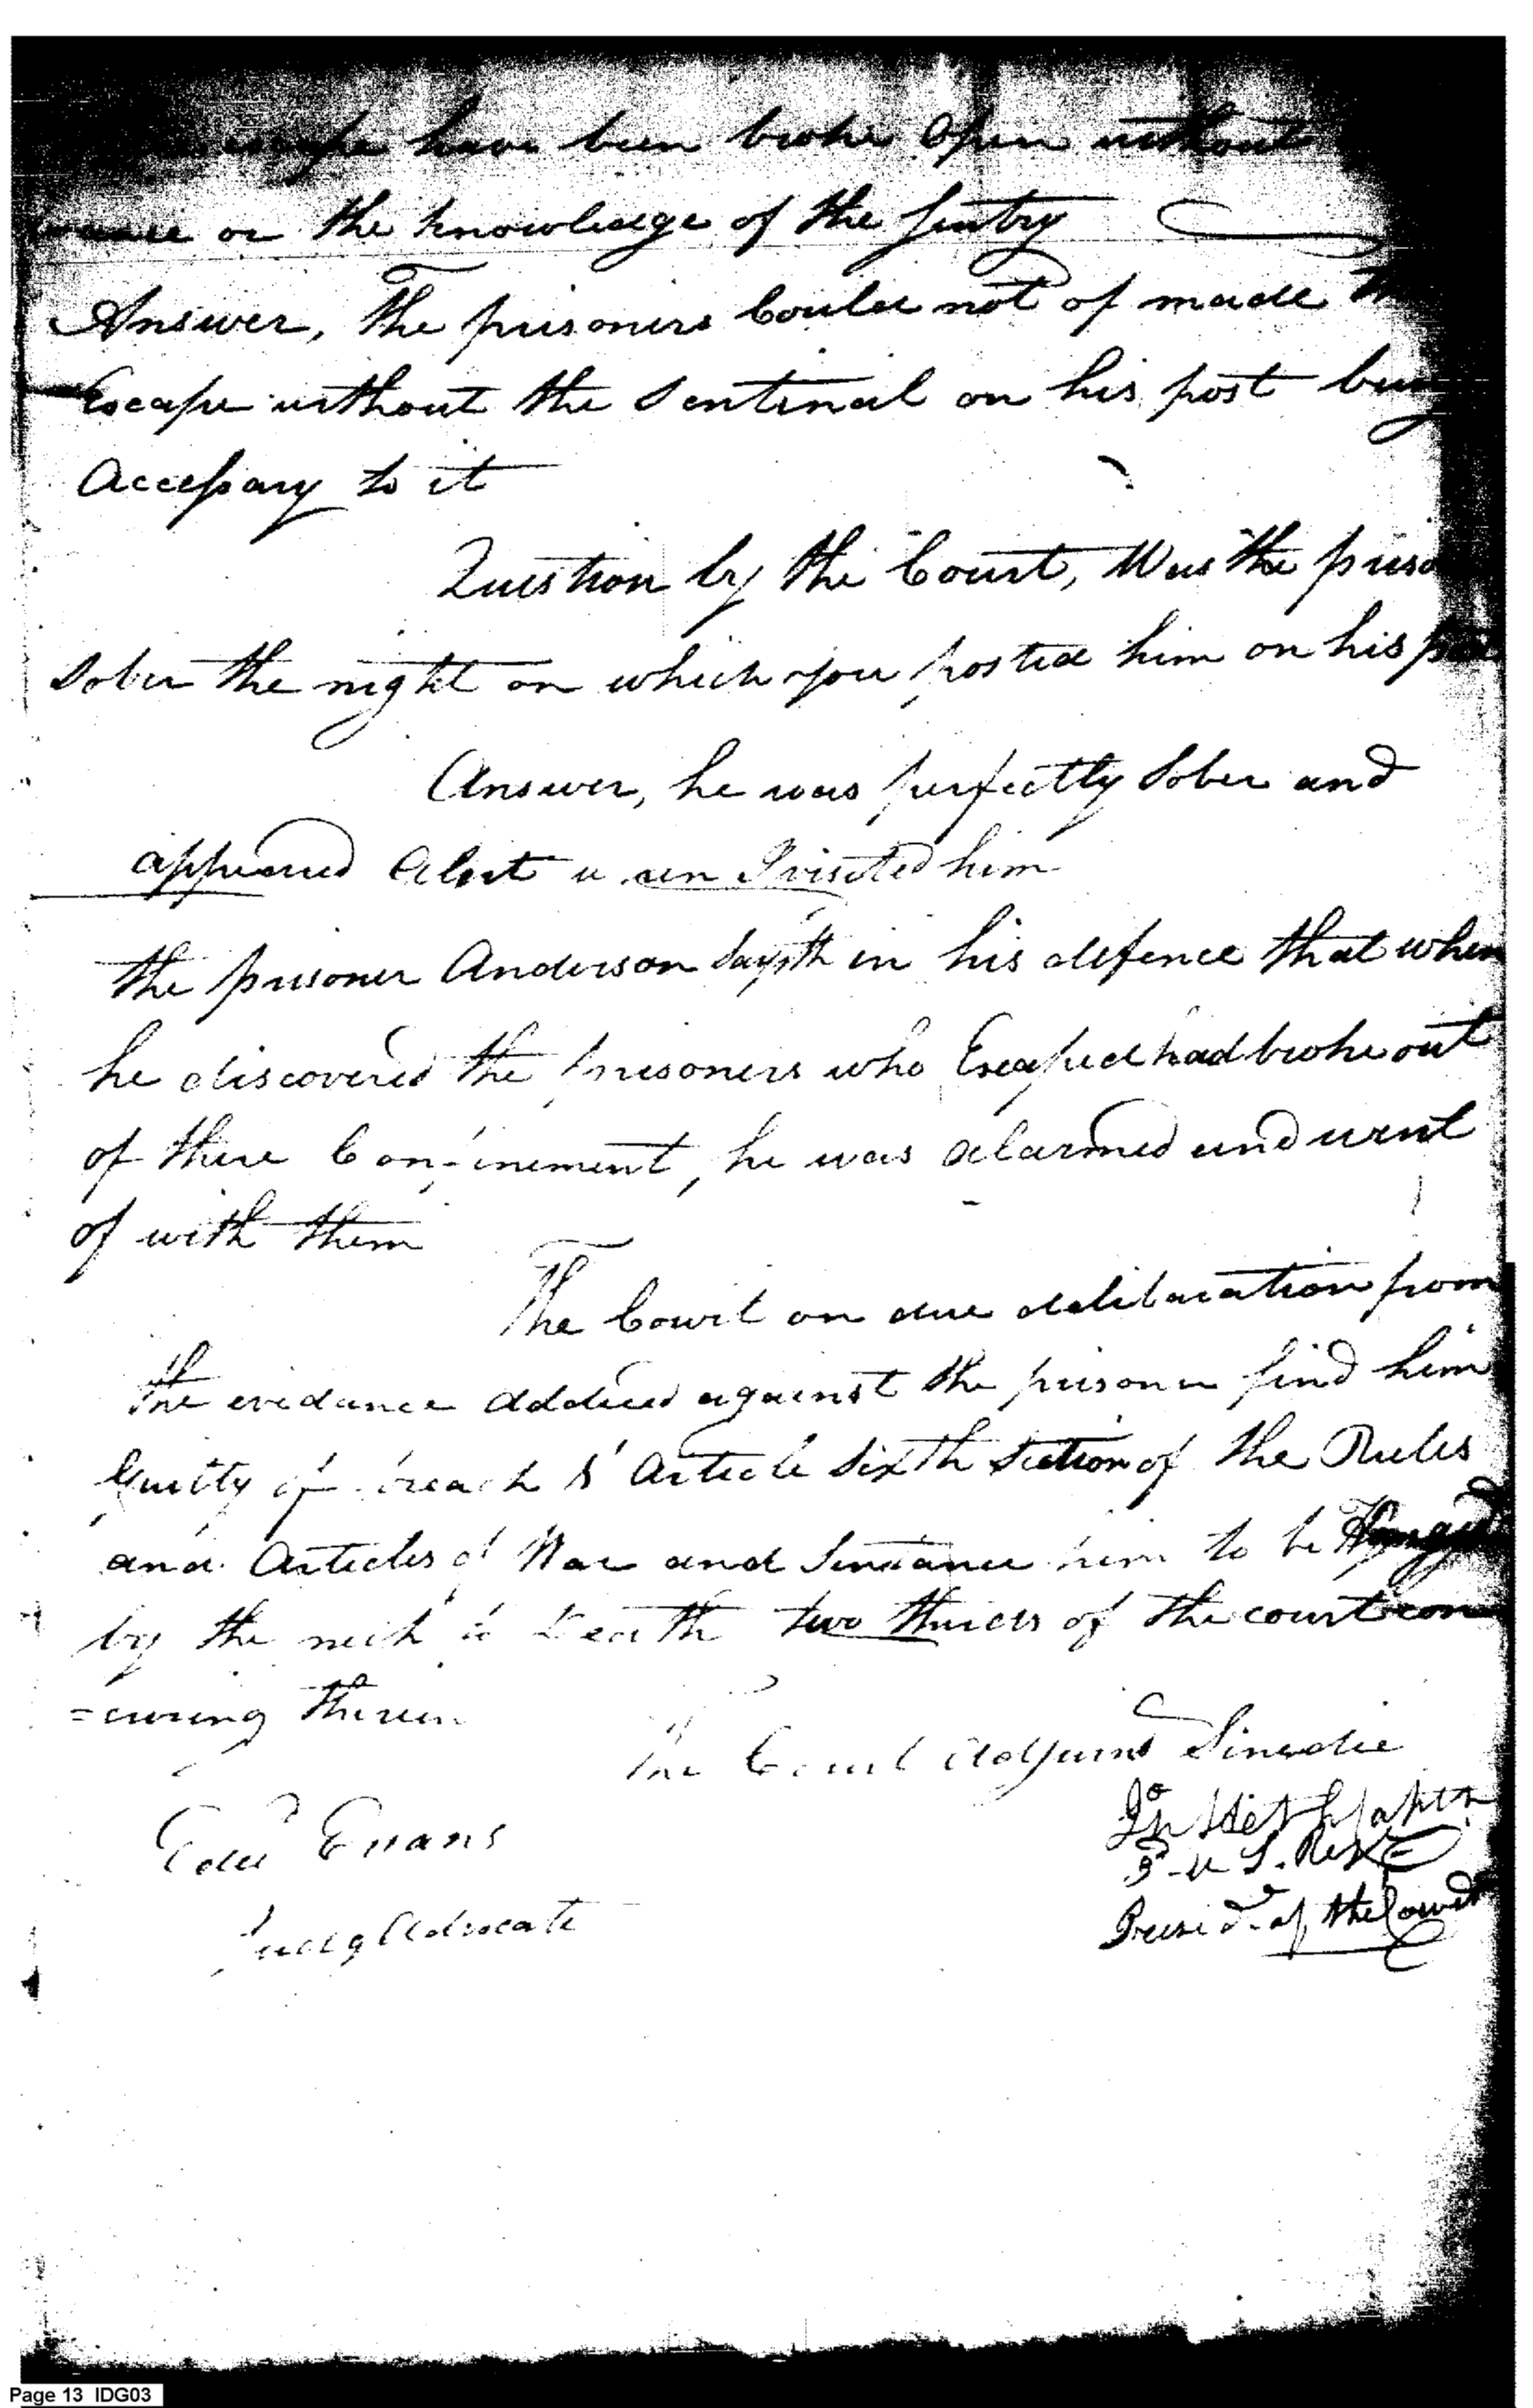 have been broke Open without
or the knowledge of the Sentry
Answer, The prisoners Could not of made
Escape without the Sentinal on his post
Accessary to it
Question by the Court, Was the
Sober the night on which you posted him on his
Answer, he was perfectly Sober and
appeared Alert I visited him
the prisoner Anderson Sayeth in his defence that when
he discovered the prisoners who Escaped had broke out
of there Confinement, he was alarmed and went
of with them
The Court on due deliberation from
the evidance adduced against the prisoner find him
Guilty of breach Article Sixth Section of the Rules
and Articles of War and Sentance him to be Hanged
by the neck to Death two thirds of the court con
=curing therein
The Court Adjurnd Sinedie
Edwd Evans
Judg Advocate
Capt
3d U S. Regt
Presidt of the Court
Page 13 IDG03